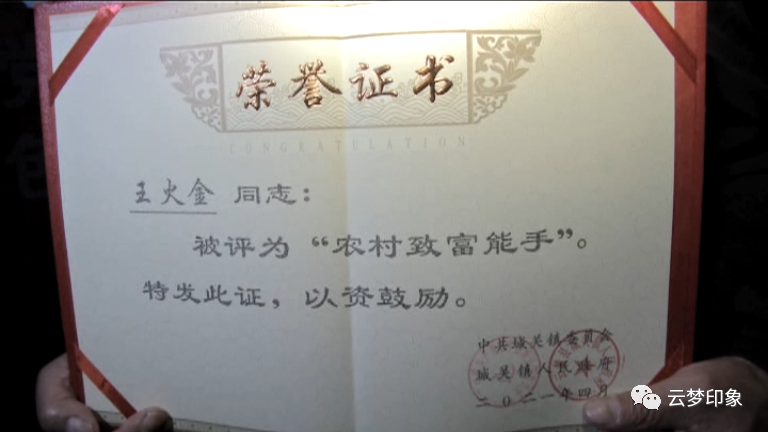 荣誉证书
CONGRATULATION
王火金 同志：
被评为“农村致富能手”。
特发此证，以资鼓励。
中共城关镇委员会
城关镇人民政府
二〇二一年四月
云梦印象